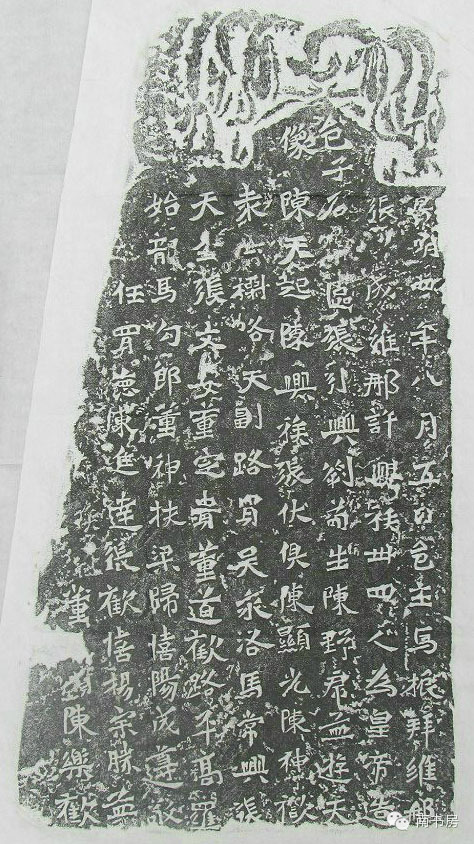 景明四年八月五日邑主馬振拜維那
張成維那許興族卅四人為皇帝造
邑子石區張引興劉苟生陳野君孟遊天
像陳天起陳興張伏俱陳顯光陳神歡
天副路買吳永洛馬常興張
天生張文安董定貴董道歡路平高
始龍馬勾郎董神扶梁歸憘陽成遵敬
任買德陳進達張歡憘楊宗勝孟
董陳樂歡
南书房